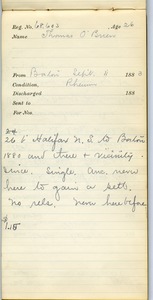 Reg. No. 68,603 Age 26
Name Thomas O'Brien
From Boston Sept. 11 188
Condition, Rheum
Discharged 188
Sent to
For Nos.
26 b Halifax N.S. to Boston
1880 and there & vicinity
since. Single. Am. never
here to gain a sett.
No rels. Never here before